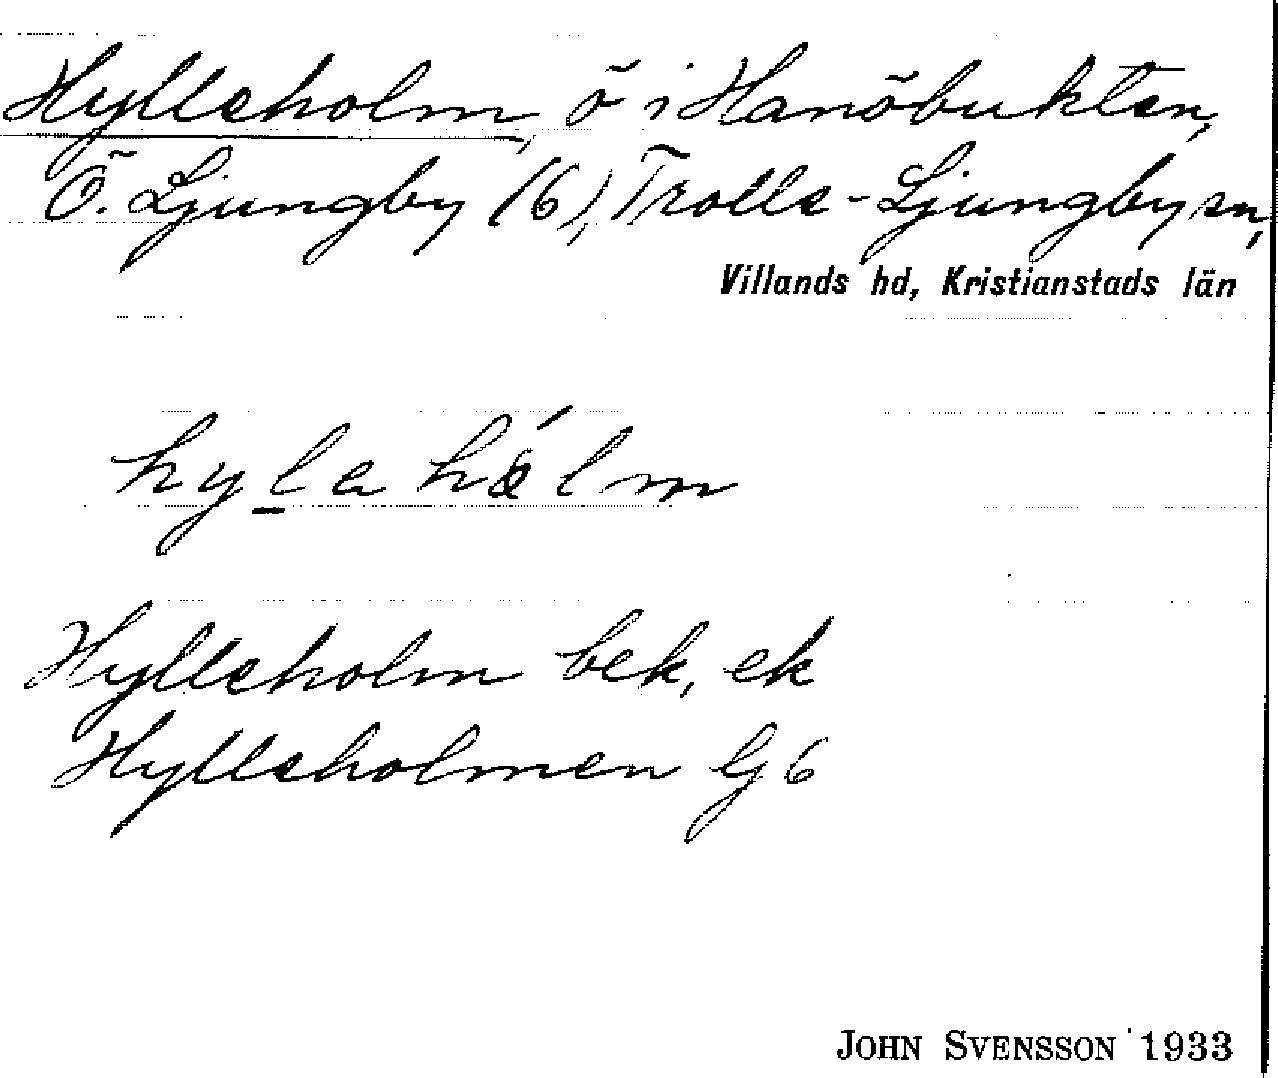 Hylleholm, ö i Hanöbukten,
Ö. Ljungby (6), Trolle-Ljungby sn,
Villands hd, Kristianstads län
hylahålm
Hylleholm bek, ek
Hylleholmen G 6
JOHN SVENSSON 1933